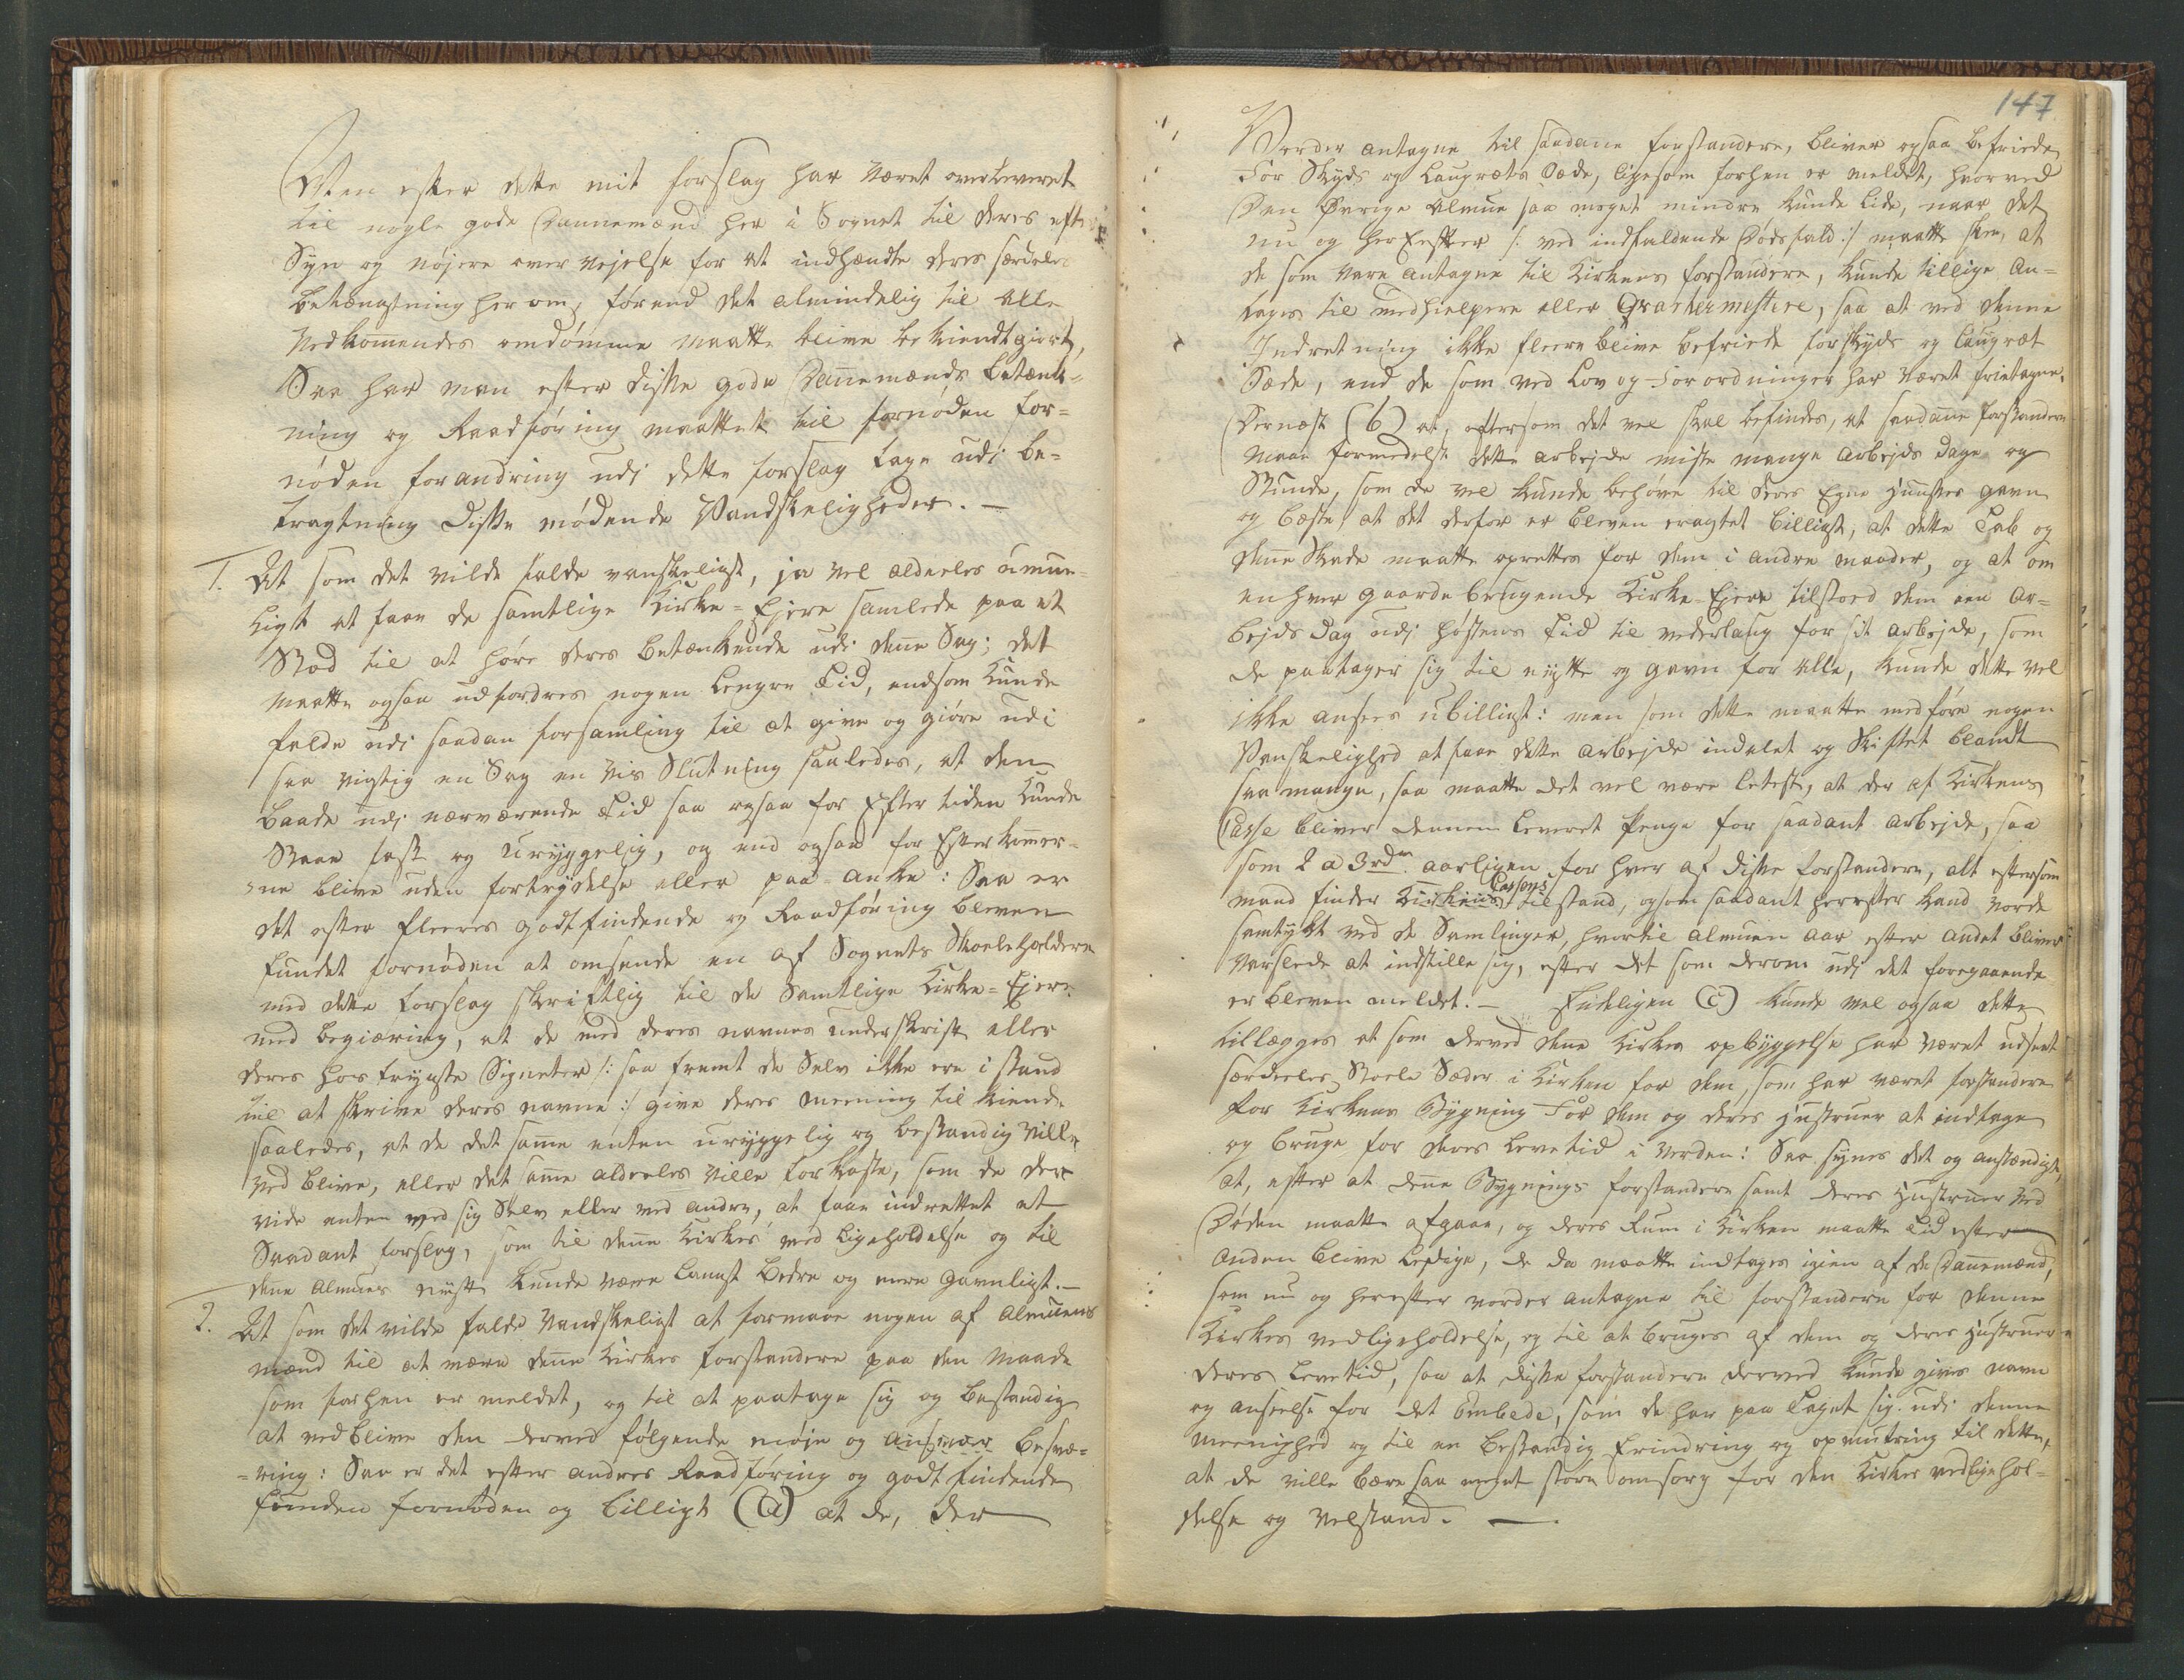 Men efter dette mit forslag har været overleveret
til nogle gode Dannemænd her i Sognet til deres efter
Syn og nøjere over vejelse for at indhændte deres særdeles
betænkning her om, førend det almindelig til alle
Vedkommendes omdømme maatte blive bekiendtgiort,
Saa har man efter diße gode Dannemænds Betænk=
ning og Raadføring maattet til fornøden for=
nøden forandring udi dette forslag tage udi be=
tragtning Diße mødende Vandskeligheder. —
1. At som det vilde falde vanskeligt, ja vel aldeeles umue=
ligt at faae de samtlige Kirke=Ejere samlede paa et
Stæd til at høre deres betænkende udi denne Sag; det
maatte ogsaa udfordres nogen Lengre Tid, endsom kunde
falde udi saadan forsamling til at give og giøre udi
saa vigtig en Sag en vis Slutning saaledes, at den
baade udi nærværende Tid saa ogsaa for Efter tiden kunde
Staae fast og uryggelig, og end ogsaa for Efterkommer=
=ne blive uden fortrydelse eller paa=anke: Saa er
det efter fleeres godtfindende og Raadføring bleven
fundet fornøden at omsende en af Sognets Skoeleholdere
med dette forslag skriftlig til de Samtlige Kirke=Ejere
med begiæring, at de med deres navnes underskrift eller
deres hos trygte Signeter /: saa fremt de Selv ikke ere i stand
til at skrive deres navne :/ give deres meening til kiende
saaledes, at de det samme enten uryggelig og bestandig ville
ved blive, eller det samme aldeeles ville forkaste, som de der
vide enten ved sig Selv eller ved andre, at faae indrettet et
Saadant forslag, som til denne Kirkes ved ligeholdelse og til
denne Almues nytte kunde være langt bedre og mere gavnligt. —
2. At som det vilde falde Vandskeligt at formaae nogen af Almuens
mænd til at være denne Kirkes forstandere paa den Maade
som forhen er meldet, og til at paatage sig og bestandig
at vedblive den derved følgende møje og ansvar besvæ=
=ring: Saa er det efter andres Raadføring og godtfindende
funden fornøden og billigt (a) at de, der
147
Vorder antagne til saadane forstandere, bliver ogsaa befriede
For Skyds og Laugræts Sæde, ligesom forhen er meldet, hvorved
Den øvrige Almue saa meget mindre kunde lide, naar det
nu og her Efter /: ved indfaldende Dødsfald :/ maatte skee, at
de som vare antagne til Kirkens forstandere, kunde tillige An=
tages til medhielpere eller Qvartermestere, saa at ved denne
Indretning ikke fleere blive befriede for skyds og Laugræt
Sæde, end de som ved Lov og Forordninger har været frietagne.
Dernæst (b) at, eftersom det vel skal befindes, at saadanne forstandere
maae formedelst dette arbejde miste mange arbejds dage og
Stunde, som de vel kunde behøve til deres Egne Huusers gavn
og bæste, at det derfor er bleven eragtet billigt, at dette Tab og
denne Skade maatte oprettes for dem i andre maader, og at om
en hver gaarde brugende Kirke=Ejere tilstoed dem een Ar=
bejds Dag udi høstens Tid til vederlaug for sit arbejde, som
de paatager sig til nytte og gavn for alle, kunde dette vel
ikke ansees ubilligt: men som dette maatte medføre nogen
Vanskelighed at faae dette arbejde indalet og Skiftet blandt
saa mange, saa maatte det vel være letest, at der af Kirkens
Casse bliver dennem leveret Penge for saadant arbejde, saa
som 2 a 3 rdr. aarligen for hver af diße forstandere, alt eftersom
mand finder Kirkens Cassens tilstand, og som saadant herefter kand vorde
samtykt ved de Samlinger, hvortil Almuen aar efter andet bliver
varslede at indstille sig, efter det som derom udi det foregaaende
er bleven meldet. — Endeligen (c) kunde vel ogsaa dette
tillægges at som derved denne Kirkes opbyggelse har været udseet
særdeeles Stoele Sæder i Kirken for dem, som har været forstandere
for Kirkens Bygning For dem og deres Hustruer at indtage
og bruge for deres levetid i Verden: Saa synes det og anstændigt,
at, efter at denne Bygnings forstandere samt deres Hustruer ved
Døden maatte afgaae, og deres Rum i Kirken maatte Tid efter
anden blive ledige, de da maatte indtages igien af de Dannemænd,
som nu og herefter vorder antagne til forstandere for denne
Kirkes vedligeholdelse, og til at bruges af dem og deres Hustruer
deres levetid, saa at diße forstandere derved kunde gives navn
og anseelse for det Embede, som de har paa taget sig udi denne
meenighed og til en bestandig Erindring og opmuntring til dette,
at de ville bære saa meget større omsorg for den Kirkes vedligehol=
delse og Velstand. —